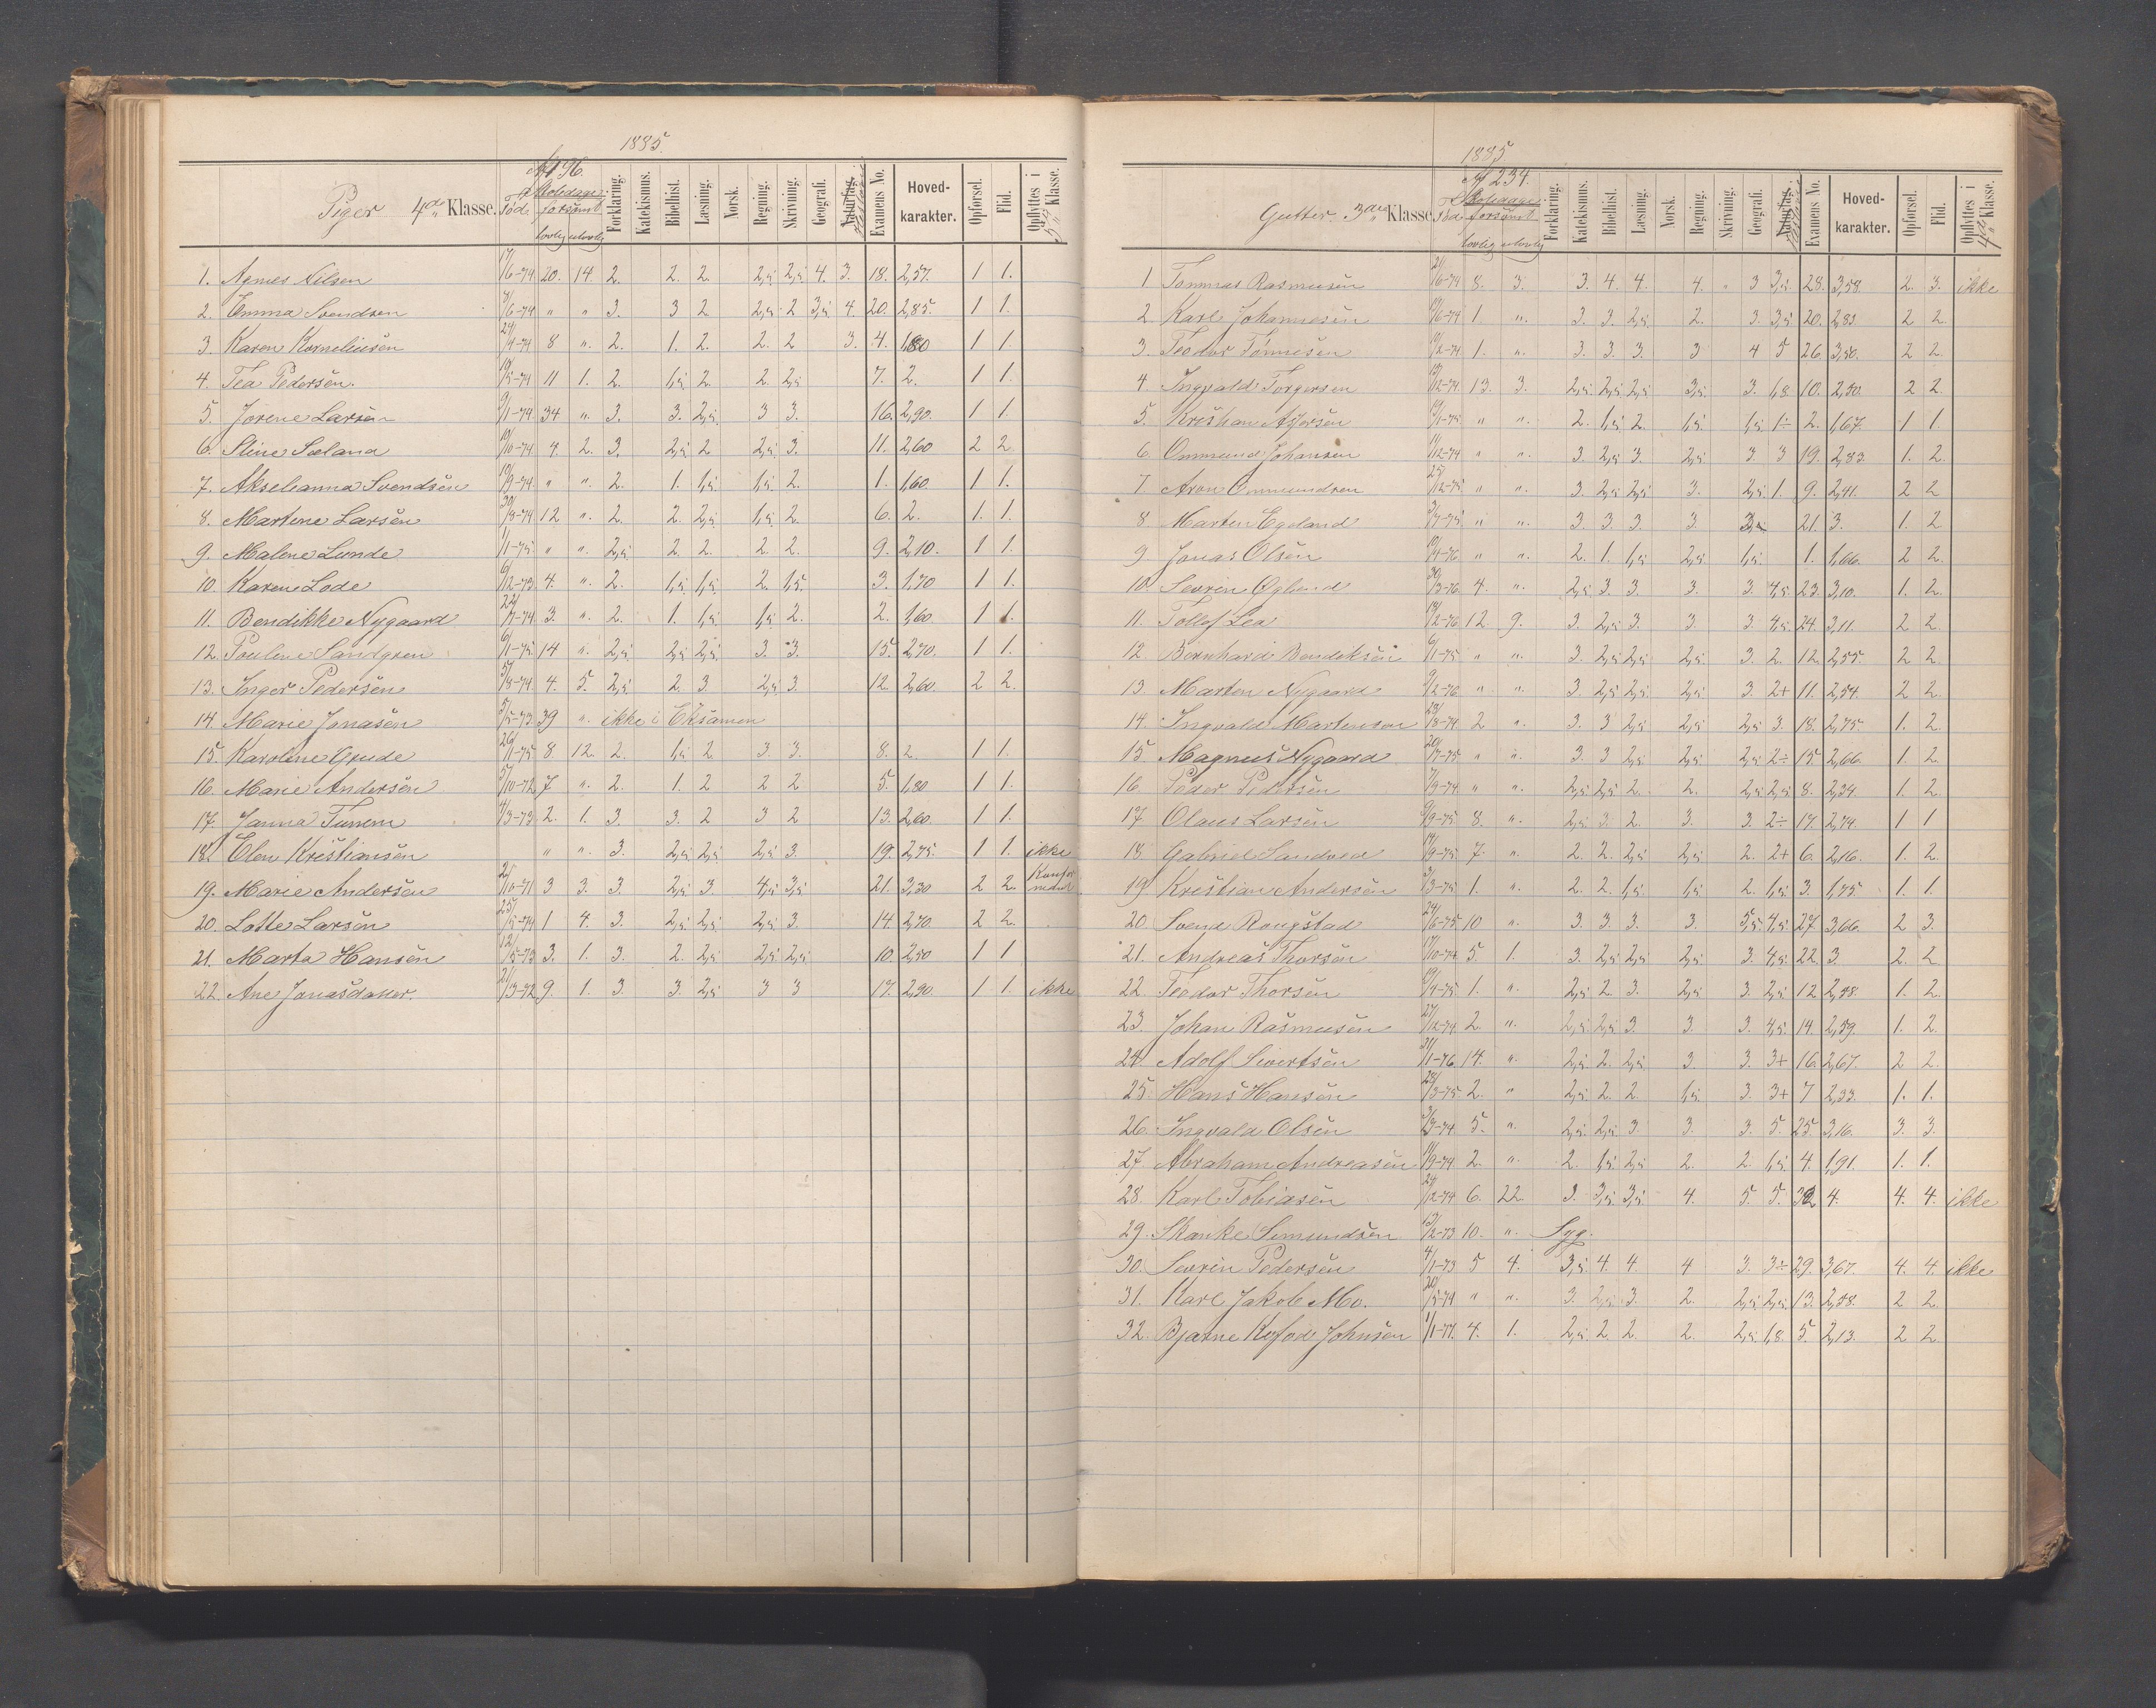 1885.
Piger 4de Klasse. Född Af 196 Skoledage forsömt lovlig ulovlig Forklaring. Katekismus. Bibelhist. Læsning. Norsk. Regning. Skrivning. Geografi. Naturfag. Examens No. Hoved-karakter. Opførsel. Flid. Opflyttes i 5te Klasse.
1. Agnes Nilsen 17/6-74 20. 14. 2. 2. 2. 2,5 2,5 4. 3. 18. 2,57. 1 1.
2. Emma Svendsen 7/6-74 " " 3. 3 2. 2,5 2 3,5 4. 20. 2,85. 1 1.
3. Karen Korneliusen 24/4-74 8 " 2. 1. 2. 2. 2 3. 4. 1,80 1 1.
4. Tea Pedersen. 19/5-74 11 1. 2. 1,5 2. 2. 2,5 7. 2. 1 1.
5. Jorene Larsen 9/1-74 34 " 3. 3. 2,5 3 3. 16. 2,90. 1 1.
6. Stine Sæland 19/10-74 4. 2. 3. 2,5 2 2,5 3. 11. 2,60 2 2.
7. Akselianna Svendsen 19/9-74. " " 2. 1. 1,5 1,5 2. 1. 1,60. 1 1.
8. Martine Larsen 30/8-74 12 " 2. 2. 2,5 1,5 2. 6. 2. 1. 1.
9. Malene Lunde 1/11-75 " " 2,5 2. 2. 2. 2. 9. 2,10. 1 1.
10. Karen Lode 6/12-73 4. " 2. 1,5 1,5 2. 1,5 3. 1,70 1 1.
11. Bendikke Nygaard 22/7-74 3. " 2. 1. 1,5 1,5 2. 2. 1,60. 1 1.
12. Pouline Sandgren 6/1-75 14 " 2,5 2,5 2,5 3. 3. 15. 2,70. 1 1.
13. Inger Pedersen 5/8-74. 4. 5. 2,5 2. 3. 2,5 3. 12. 2,60. 2 2.
14. Marie Jonasen 5/5-73 39 " ikke i Eksamen
15. Karoline Grude 26/11-75 8 12. 2. 1,5 2. 3 3. 8. 2. 1 1.
16. Marie Andersen 5/10-72 7 " 2. 1. 2 2 2. 5. 1,80 1 1.
17. Janna Tunem 4/3-73 2. 1. 3 3. 2 3 2 13. 2,60. 1 1.
18. Elen Kristiansen " " 3. 2,5 2,5 2,5 3. 19. 2,75. 1 1. ikke
19. Marie Andersen 2/10-71 3 3. 3. 2,5 3. 4,5 3,5 21. 3,30 2 2.
20. Lotte Larsen 25/5-74 1 4. 3. 2,5 2,5 2,5 3. 14. 2,70. 2 2.
21. Marta Hansen 12/5-73 3. 1. 3. 2. 2,5 2,5 2,5 10. 2,50 1 1
22. Ane Jonasdatter. 21/3-72 9. 1. 3. 3. 2,5 3 3 17. 2,90. 1 1. ikke
1885.
Gutter. 3die Klasse. Född Af 234. Skoledage forsömt lovlig ulovlig Forklaring. Katekismus. Bibelhist. Læsning. Norsk. Regning. Skrivning. Geografi. Naturfag. Examens No. Hoved-karakter. Opførsel. Flid. Opflyttes i 4de Klasse.
1 Tommas Rasmusen 21/6-74 8. 3. 3. 4. 4. 4. " 3 3,5 28. 3,58. 2. 3. ikke
2. Karl Johannesen 17/6-74 1 " 3. 3. 2,5 2. 3. 3,5 20. 2,83. 2 2.
3. Teodor Tönnesen 19/2-74. 1. " 3. 3. 3. 3 4 5 26. 3,50. 2 2.
4. Ingvald Torgersen 13/12-74. 13. 3. 2,5 2,5 2,5 3,5 3. 1,8 10. 2,50. 2 2
5. Kristian Asjörsen 19/1-75 " " 2. 1,5 2. 1,5 1,5 1÷ 2. 1,67. 1 1.
6. Ommund Johansen 11/12-74 " " 3. 2,5 3. 2,5 3. 3 19. 2,83. 1. 2.
7 Aron Ommundsen 25/12-75 " " 3. 2,5 2,5 3. 2,5 1. 9. 2,41. 2 2
8. Marten Egeland 3/7-75 " " 3. 3. 3. 3. 21. 3. 1. 2
9. Jonas Olsen 19/4-76 " " 2. 1. 1,5 2,5 1,5 1. 1,66. 2 2.
10. Sevrin Öglend 30/3-76 4. " 2,5 3. 3. 3. 3. 4,5 23. 3,10. 1. 2.
11. Tollef Lea 18/2-76 12. 9. 3. 2,5 3. 3. 3 4,5 24. 3,11. 2 2.
12. Bernhard Bendiksen 6/11-75 " " 3. 2,5 2,5 2,5 3. 2. 12. 2,55. 2 2.
13. Marten Nygaard 9/2-76 " " 3. 2,5 2,5 2,5 3. 2+ 11. 2,54. 2 2.
14. Ingvald Martinson 23/8-74. 2 " 3. 3 2,5 2,5 2,5 3. 18. 2,75. 1. 2.
15. Magnus Nygaard 20/7-75 " " 3. 3 2,5 2,5 2,5 2÷ 15. 2,66. 1 2.
16. Peder Pedersen 7/9-74 " " 2,5 2,5 2. 2. 2,5 2,5 8. 2,34. 1. 2.
17. Olaus Larsen 9/9-75 8. " 2,5 3. 2. 3. 3. 2÷ 17. 2,74. 1 1
18. Gabriel Sandved 14/9-75 7. " 2. 2. 2,5 2,5 2. 2+ 6. 2,16. 1. 2.
19. Kristian Andersen 3/3-75 1. " 2. 2. 1,5 1,5 2. 1,5 3. 1,75. 1. 1.
20. Svend Rougstad 24/6-75 10 " 3. 3. 3. 3. 5,5 4,5 27 3,66. 2 3.
21. Andreas Thorsen 17/10-74 5. 1. 3. 2,5 2,5 2,5 3. 4,5 22. 3. 2. 2.
22. Teodor Thorsen 19/4-75 1. " 2,5 2. 3. 2,5 3. 2,5 12 2,58. 1. 2.
23. Johan Rasmusen 27/12-74 2. " 2,5 2,5 3. 3. 3. 4,5 14. 2,59. 1. 2.
24. Adolf Sivertsen 31/1-76 14. " 2,5 2. 2,5 3 3. 3+ 16. 2,67. 2 2.
25. Hans Hansen 28/3-75 2. " 2,5 2. 2. 1,5 3. 3+ 7 2,33. 1. 1.
26. Ingvald Olsen 3/9-74 5. " 2,5 2,5 3. 3. 3. 5. 25. 3,16. 3. 3.
27. Abraham Andreasen 11/9-74 2. " 2. 1,5 2,5 2. 2. 1,5 4. 1,91. 1. 1.
28. Karl Tobiasen 24/12-74 6. 22. 3. 3,5 3,5 4. 5 5. 4. 4. 4. ikke
29. Skanke Simundsen 13/2-73 10. " Syg.
30. Sevrin Pedersen 4/1-73 5 4. 3,5 4. 4. 4 3. 3÷ 29. 3,67. 4. 4. ikke
31. Karl Jakob Mo. 20/5-74 " " 3. 2,5 3. 2. 2,5 2,5 13. 2,58. 2 2.
32. Bjarne Kofod Johnsen 1/1-77. 4. 1. 2,5 2. 2. 2. 2,5 1,8 5. 2,13. 2 2.